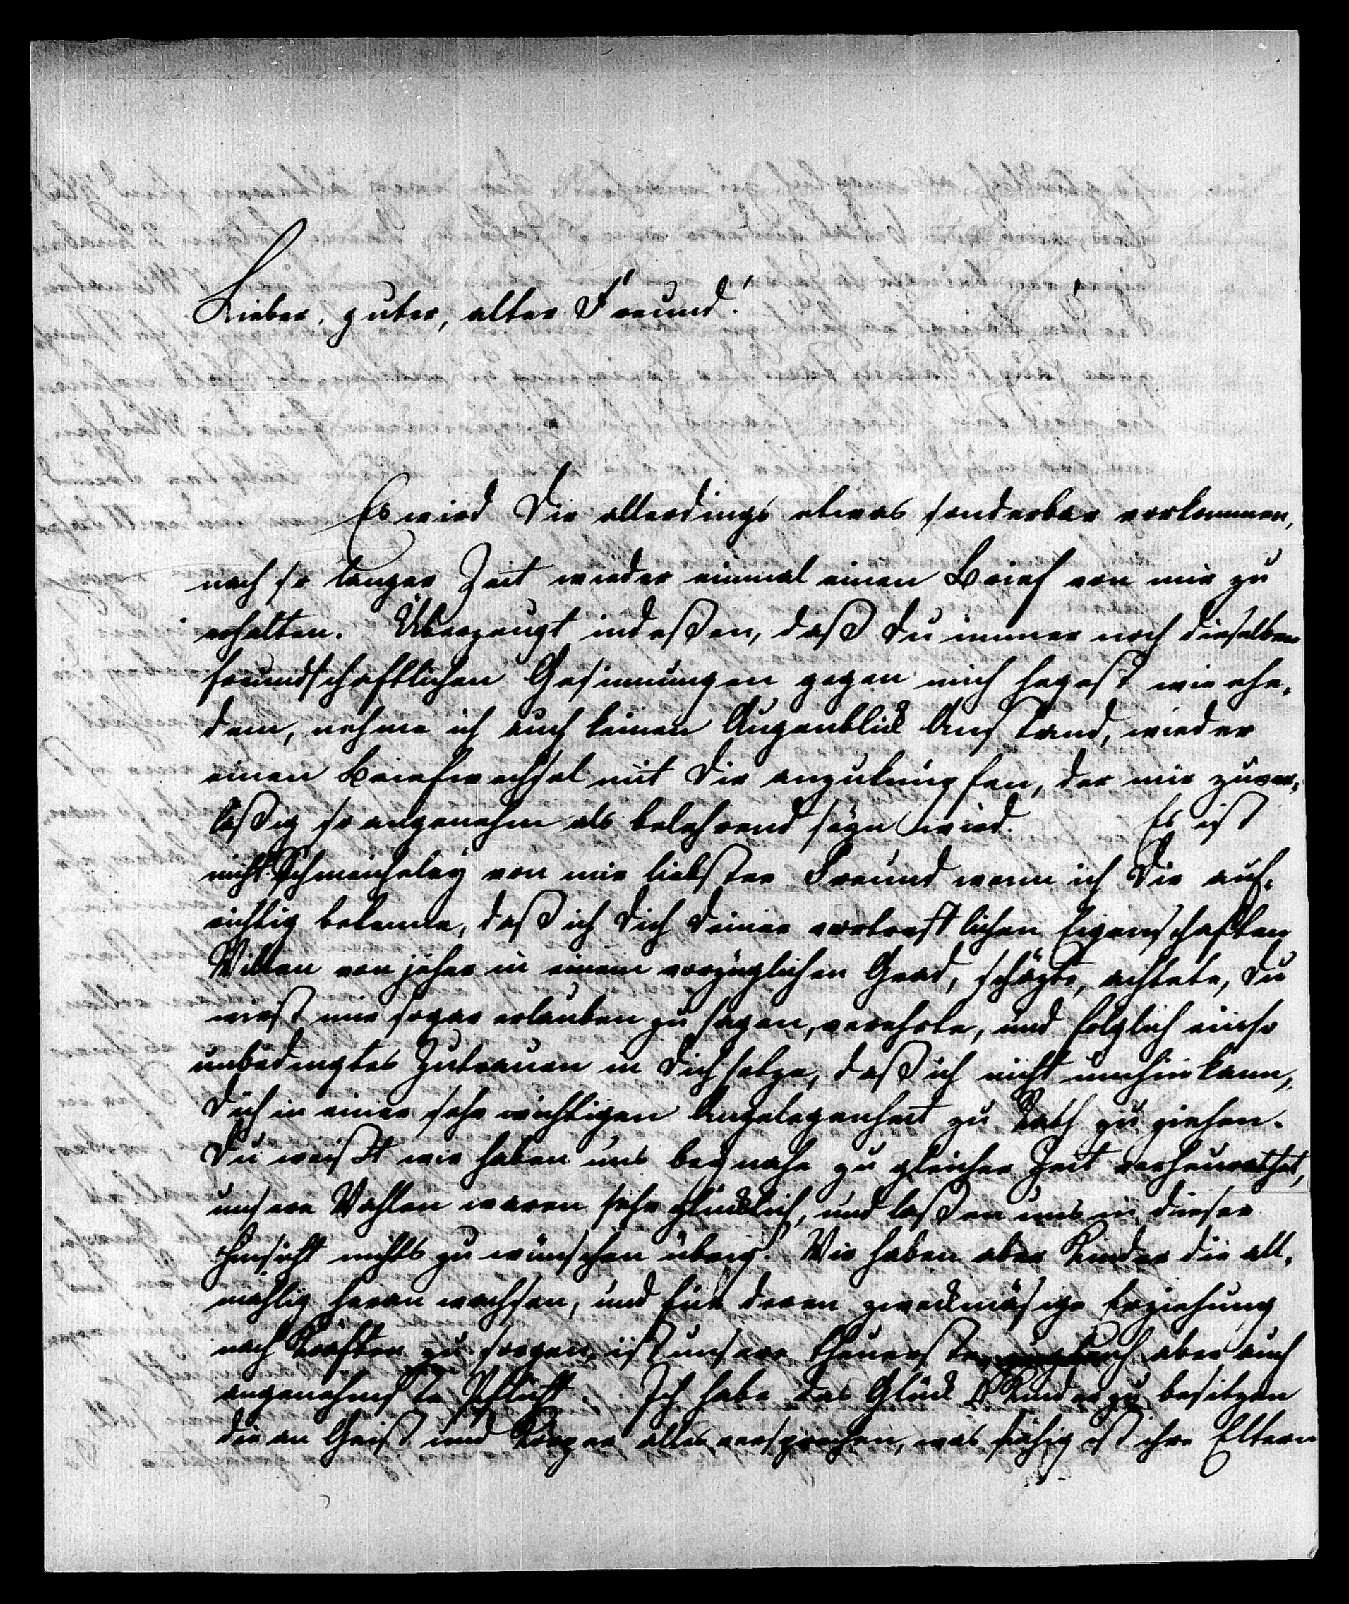 Lieber, guter, alter Freund!
Es wird Dir allerdings etwas sonderbar vorkommen,
nach so langer Zeit wieder einmal einen Brief von mir zu
erhalten. Überzeugt indeßen, daß Du immer noch dieselben
freundschaftlichen Gesinnungen gegen mich hegest wie ehe-
dem, nehme ich auch keinen Augenblick Anstand, wieder
einen Briefwechsel mit Dir anzuknüpfen, der mir zuver-
läßig so angenehm als belehrend seyn wird. Es ist
nicht Schmeicheley von mir liebster Freund wenn ich Dir auf-
richtig bekenne, daß ich Dich Deiner vortreflichen Eigenschaften
Willen von jeher in einem vorzüglichen Grad, schäzte, achtete, Du
wirst mir sogar erlauben zu sagen, verehrte, und folglich ein so
unbedingtes Zutrauen in Dich setze, daß ich nicht umhin kann,
Dich in einer sehr wichtigen Angelegenheit zu Rath zu ziehen.
Du weißt wir haben uns beynahe zu gleicher Zeit verheurathet,
unsere Wahlen waren sehr glücklich, und laßen uns in dieser
Hinsicht nichts zu wünschen übrig. Wir haben aber Kinder die all-
mählig heran wachsen, und für deren zweckmäsige Erziehung
nach Kräften zu sorgen, ist unsere theuerste, aber auch
angenehmste Pflicht. Ich habe das Glück Kinder zu besitzen
die an Geist und Körper alles versprechen, was fähig ist ihre Eltern